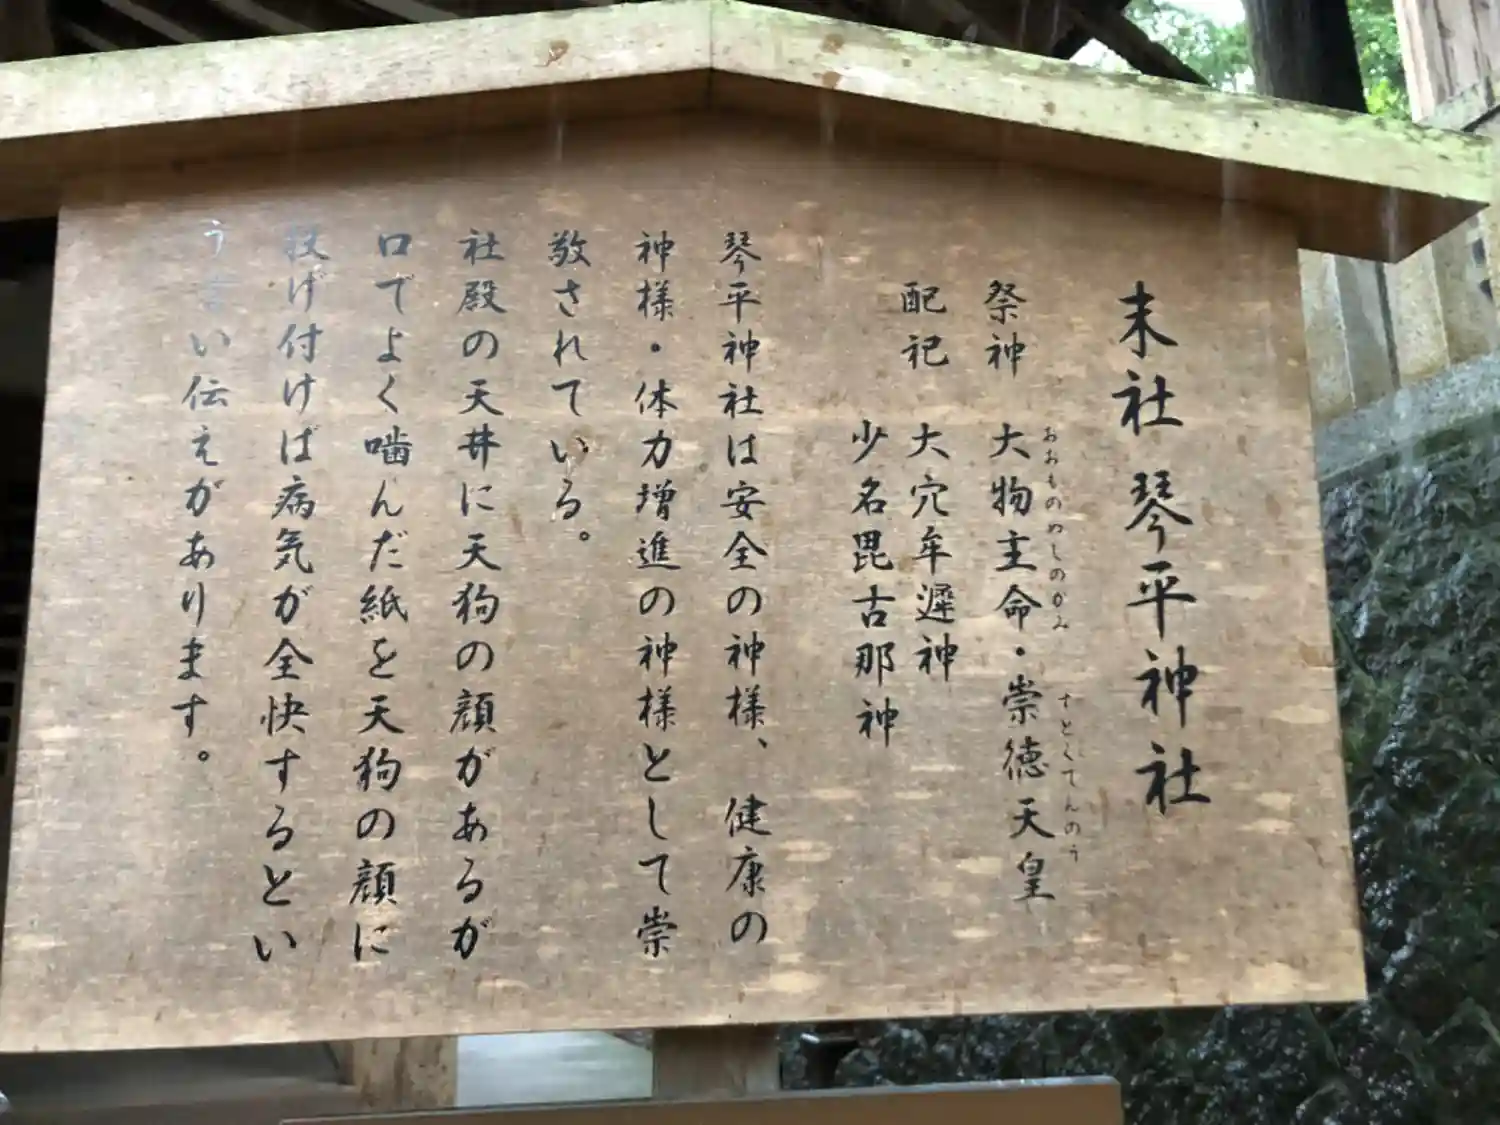 末社 琴平神社
祭神 大物主命・崇徳天皇
おおものぬしのかみ
すとくてんのう
配祀 大穴牟遲神
少名毘古那神
琴平神社は安全の神様、健康の
神様・体力増進の神様として崇
敬されている。
社殿の天井に天狗の顔があるが
口でよく噛んだ紙を天狗の顔に
投げ付けば病気が全快するとい
う言い伝えがあります。